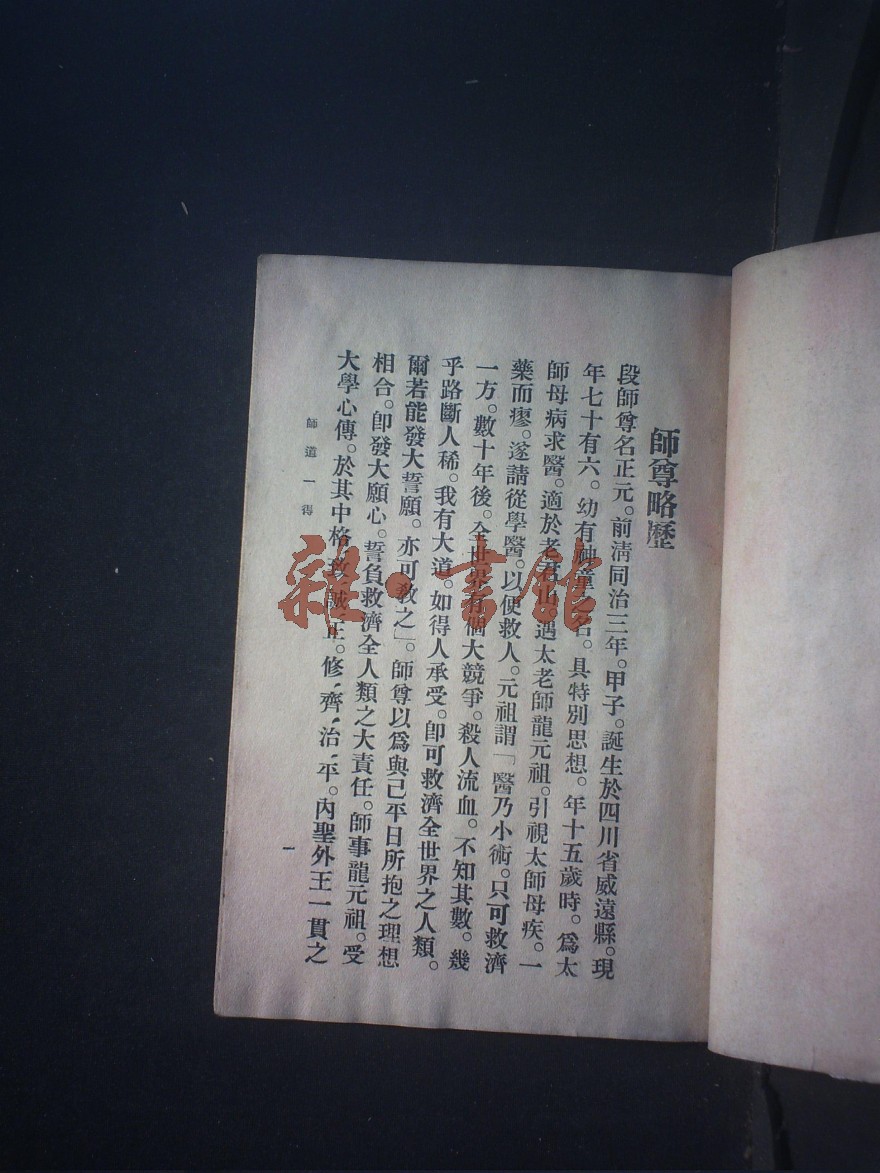 師尊略歷
段師尊名正元。前淸同治三年。甲子。誕生於四川省威遠縣。現
年七十有六。幼有神童之名。具特別思想。年十五歲時。爲太
師母病求醫。適於老君山。遇太老師龍元祖。引視太師母疾。一
藥而瘳。遂請從學醫。以便救人。元祖謂「醫乃小術。只可救濟
一方。數十年後。全世界有個大競爭。殺人流血。不知其數。幾
乎路斷人稀。我有大道。如得人承受。卽可救濟全世界之人類。
爾若能發大誓願。亦可敎之」。師尊以爲與己平日所抱之理想
相合。卽發大願心。誓負救濟全人類之大責任。師事龍元祖。受
大學心傳。於其中格致誠正。修、齊、治、平。內聖外王一貫之
師道一得
一
雜·書館